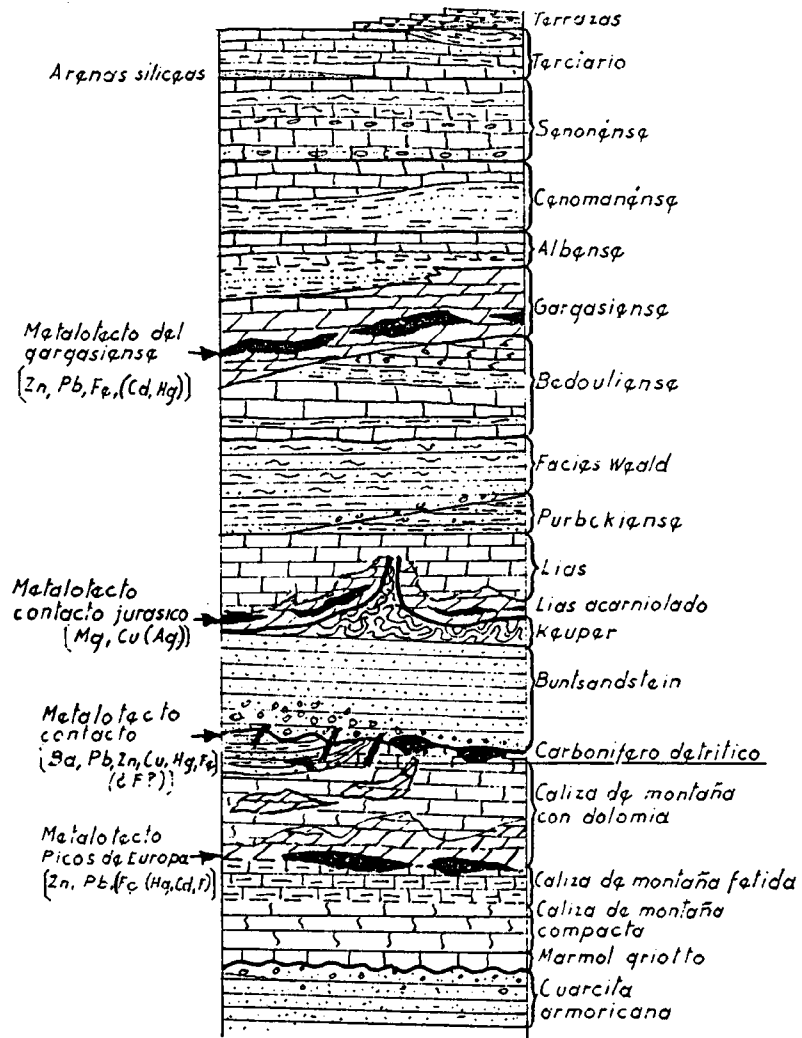 Terrazas
Terciario
Arenas siliceas
Senonénse
Cenomanénse
Albense
Gargasiense
Metalotecto del
gargasiense
[Zn, Pb, Fe, (Cd, Hg)]
Bedouliense
Facies Weald
Purbekiense
Lias
Metalotecto
contacto jurasico
[Mg, Cu (Ag)]
Lias acarniolado
Keuper
Buntsandstein
Metalotecto
contacto
[Ba, Pb, Zn, Cu, Hg, Fe]
(¿ F?)]
Carbonifero detritico
Caliza de montaña
con dolomia
Metalotecto
Picos de Europa
[Zn, Pb, (Fe (Hg, Cd, F)]
Caliza de montaña fetida
Caliza de montaña
compacta
Marmol griotto
Cuarcita
armoricana